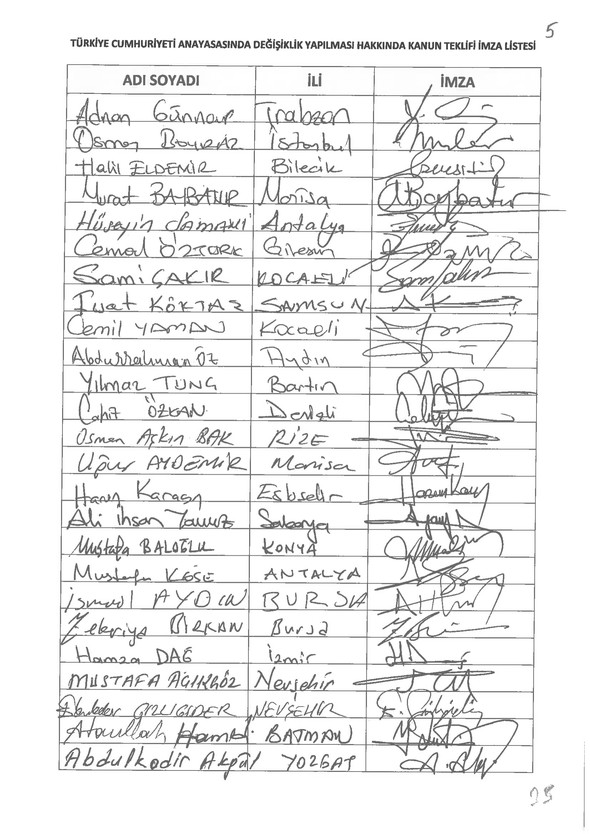 5
TÜRKİYE CUMHURİYETİ ANAYASASINDA DEĞİŞİKLİK YAPILMASI HAKKINDA KANUN TEKLİFİ İMZA LİSTESİ
ADI SOYADI İLİ İMZA
Adnan Günnar Trabzon
Osman BOYRAZ İstanbul
Halil ELDEMİR Bilecik
Murat BAYBATUR Manisa
Hüseyin Samani Antalya
Cemal ÖZTÜRK Giresun
Sami ÇAKIR KOCAELİ
Fuat KÖKTAŞ SAMSUN
Cemil YAMAN Kocaeli
Abdurrahman Öz Aydın
Yılmaz TUNÇ Bartın
Cahit ÖZKAN Denizli
Osman Aşkın BAK RİZE
Uğur AYDEMİR Manisa
Harun Karacan Eskişehir
Ali İhsan Yavuz Sakarya
Mustafa BALOĞLU KONYA
Mustafa KÖSE ANTALYA
İsmail AYDIN BURSA
Zekeriya BİRKAN Bursa
Hamza DAĞ İzmir
MUSTAFA AÇIKGÖZ Nevşehir
NEVŞEHİR
Ataullah Hamidi BATMAN
Abdulkadir Akgül YOZGAT